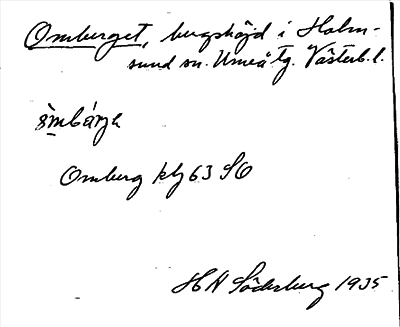 Omberget, bergshöjd i Holm-
sund sn. Umeå tg. Västerb. l.
Omberg klj 63 SO
H N Söderberg 1935